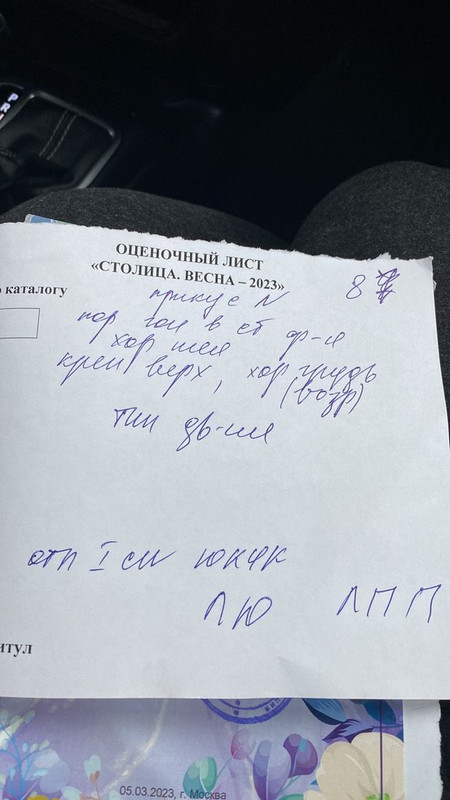 ОЦЕНОЧНЫЙ ЛИСТ
«СТОЛИЦА. ВЕСНА – 2023»
о каталогу
прикус N
8
пор гол в ст ф-я
хор шея
креп верх, хор грудь
(возр)
тип дв-ия
отл I см ЮКЧК
ЛЮ ЛПП
итул
05.03.2023, г. Москва